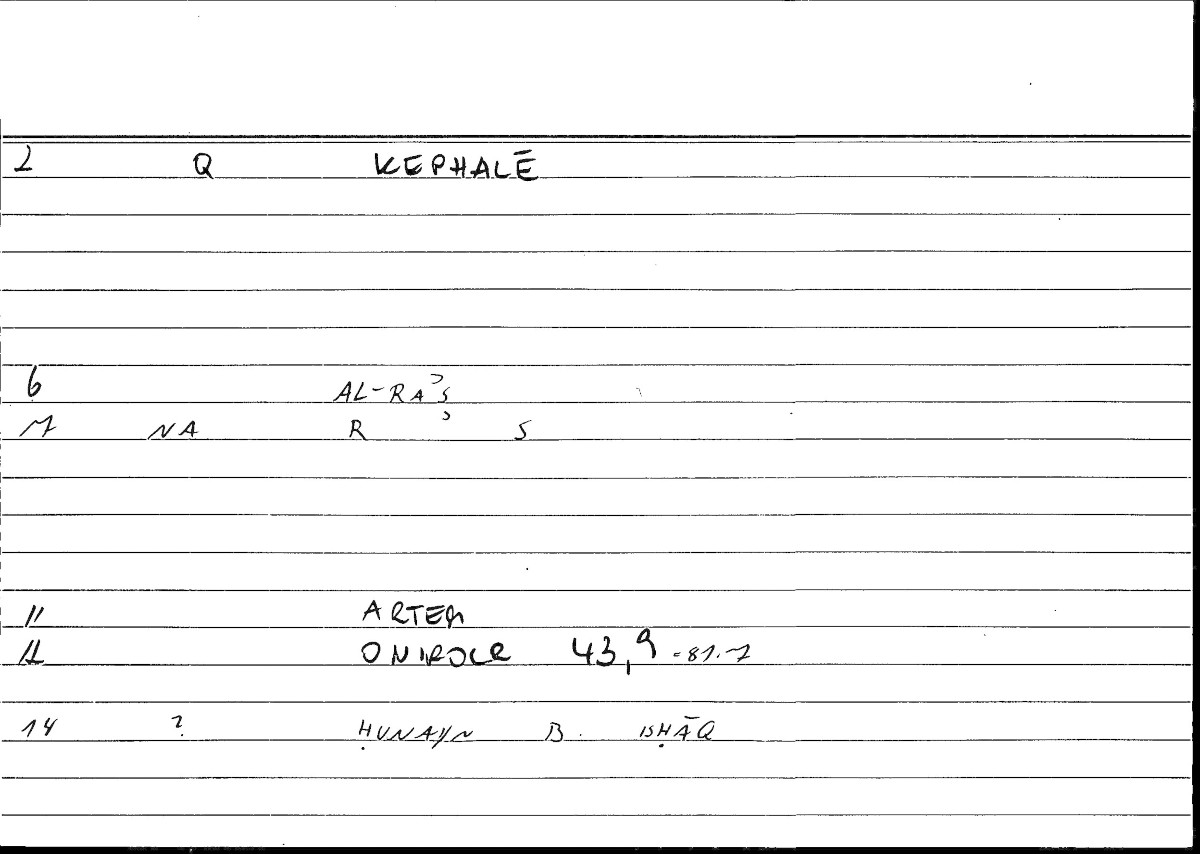 2 Q KEPHALĒ
6 AL-RAʾS
7 NA R ʾ S
11 ARTEM
12 ONIROCR 43,9 = 81.7
14 ? ḤUNAYN B. ISḤĀQ